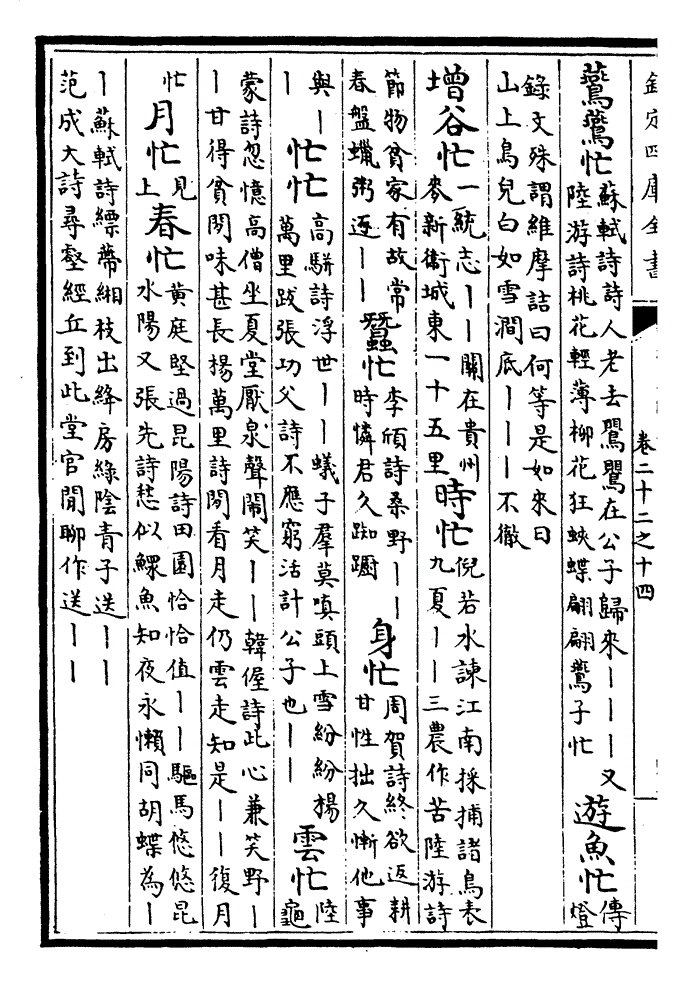 欽定四庫全書
卷二十二之十四
鷰鷰忙
蘇軾詩詩人老去鸎鸎在公子歸來丨丨丨又
陸游詩桃花輕薄柳花狂蛺蝶翩翩鷰子忙
遊魚忙
傳
燈
錄文殊謂維摩詰曰何等是如來曰
山上鳥兒白如雪澗底丨丨丨不徹
增谷忙
一統志丨丨關在貴州
麥新衛城東一十五里
時忙
倪若水諫江南採捕諸鳥表
九夏丨丨三農作苦陸游詩
節物貧家有故常
春盤蠟粥逓丨丨
蠶忙
李頎詩桑野丨丨
時憐君久踟躕
身忙
周賀詩終欲返耕
甘性拙久慚他事
與丨
丨
忙忙
高駢詩浮世丨丨蟻子羣莫嗔頭上雪紛紛揚
萬里跋張功父詩不應窮活計公子也丨丨
雲忙
陸
龜
蒙詩忽憶高僧坐夏堂厭泉聲鬧笑丨丨韓偓詩此心兼笑野丨
丨甘得貧閒味甚長楊萬里詩閒看月走仍雲走知是丨丨復月
忙
月忙
見
上
春忙
黄庭堅過昆陽詩田園恰恰值丨丨驅馬悠悠昆
水陽又張先詩愁似鰥魚知夜永懶同胡蝶為丨
丨蘇軾詩縹蔕緗枝出絳房綠陰青子送丨丨
范成大詩尋壑經丘到此堂官閒聊作送丨丨